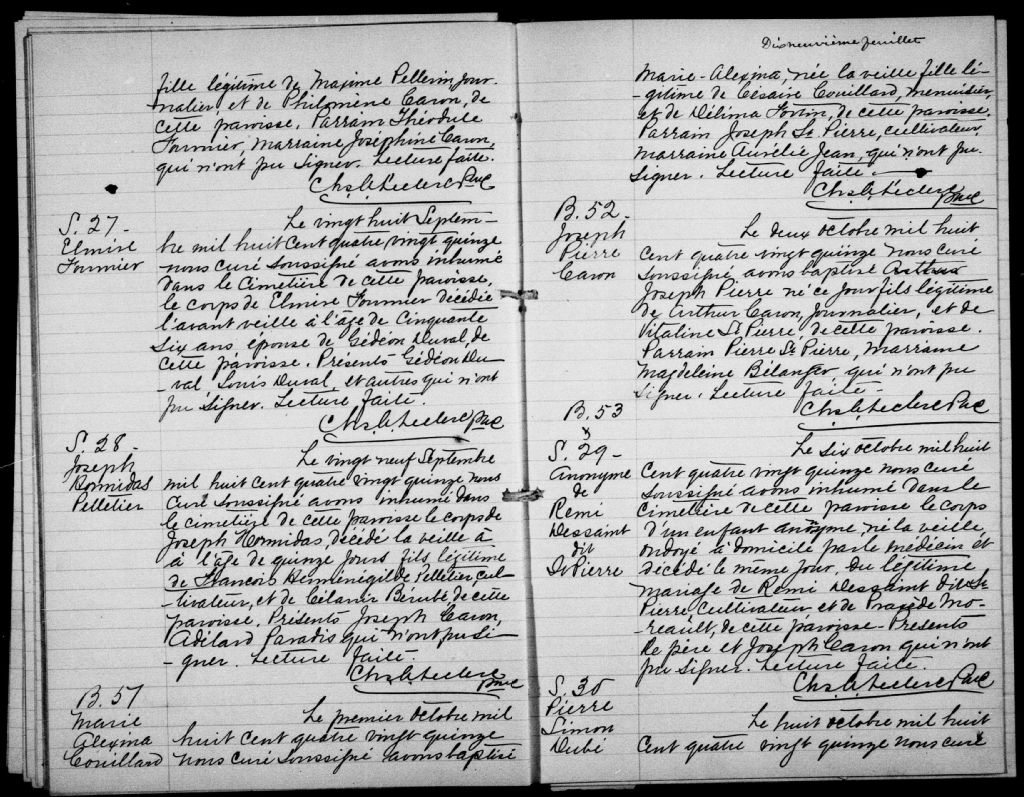 fille légitime de Maxime Pellerin jour-
nalier et de Philomène Caron, de
cette paroisse. Parrain Théodule
Fournier, marraine Joséphine Caron,
qui n'ont pu signer. Lecture faite.
Chs. A. Leclerc Ptre
S. 27 -
Elmire
Fournier
Le vingt huit Septem-
bre mil huit cent quatre vingt quinze
nous curé soussigné avons inhumé
dans le Cimetière de cette paroisse,
le corps de Elmire Fournier décédée
l'avant veille à l'âge de Cinquante
six ans, épouse de Gédéon Duval, de
cette paroisse. Présents Gédéon Du-
-val Louis Duval, et autres qui n'ont
pu signer. Lecture faite.
Chs. A. Leclerc Ptre
S. 28 -
Joseph
Hormidas
Pelletier
Le vingt neuf Septembre
mil huit cent quatre vingt quinze nous
Curé soussigné avons inhumé dans
le cimetière de cette paroisse le corps de
Joseph Hormidas, décédé la veille à
à l'âge de quinze jours fils légitime
de François Herménégilde Pelletier cul-
-tivateur, et de Célanir Bérubé de cette
paroisse. Présents Joseph Caron,
Adélard Paradis qui n'ont pu si-
-gner. Lecture faite -
Chs. A. Leclerc Ptre
B. 51
Marie
Alexina
Couillard
Le premier octobre mil
huit cent quatre vingt quinze
nous curé soussigné avons baptisé
Dixneuvième feuillet
Marie-Alexina, née la veille fille lé-
-gitime de Césaire Couillard, menuisier
et de Délima Fortin, de cette paroisse.
Parrain Joseph St Pierre, cultivateur
marraine Aurélie Jean, qui n'ont pu
signer. Lecture faite.
Chs. A. Leclerc Ptre
B. 52 -
Joseph
Pierre
Caron
Le deux octobre mil huit
cent quatre vingt quinze nous curé
soussigné avons baptisé Arthur
Joseph Pierre né ce jour fils légitime
de Arthur Caron, journalier, et de
Vitaline St Pierre de cette paroisse.
Parrain Pierre St Pierre, marraine
Magdeleine Bélanger qui n'ont pu
signer. Lecture faite -
Chs. A. Leclerc Ptre
B. 53
S. 29 -
Anonyme
de
Remi
Dessaint
dit
St Pierre
Le six octobre mil huit
cent quatre vingt quinze nous curé
soussigné avons inhumé dans le
cimetière de cette paroisse le corps
d'un enfant anonyme, né la veille,
ondoyé à domicile par le médecin et
décédé le même jour, du légitime
mariage de Remi Dessaint dit St
Pierre, Cultivateur et de Praxède Mo-
-reault, de cette paroisse - Présents
le père et Joseph Caron qui n'ont
pu signer. Lecture faite.
Chs. A. Leclerc Ptre
S. 30
Pierre
Simon
Dubé
Le huit octobre mil huit
cent quatre vingt quinze nous curé